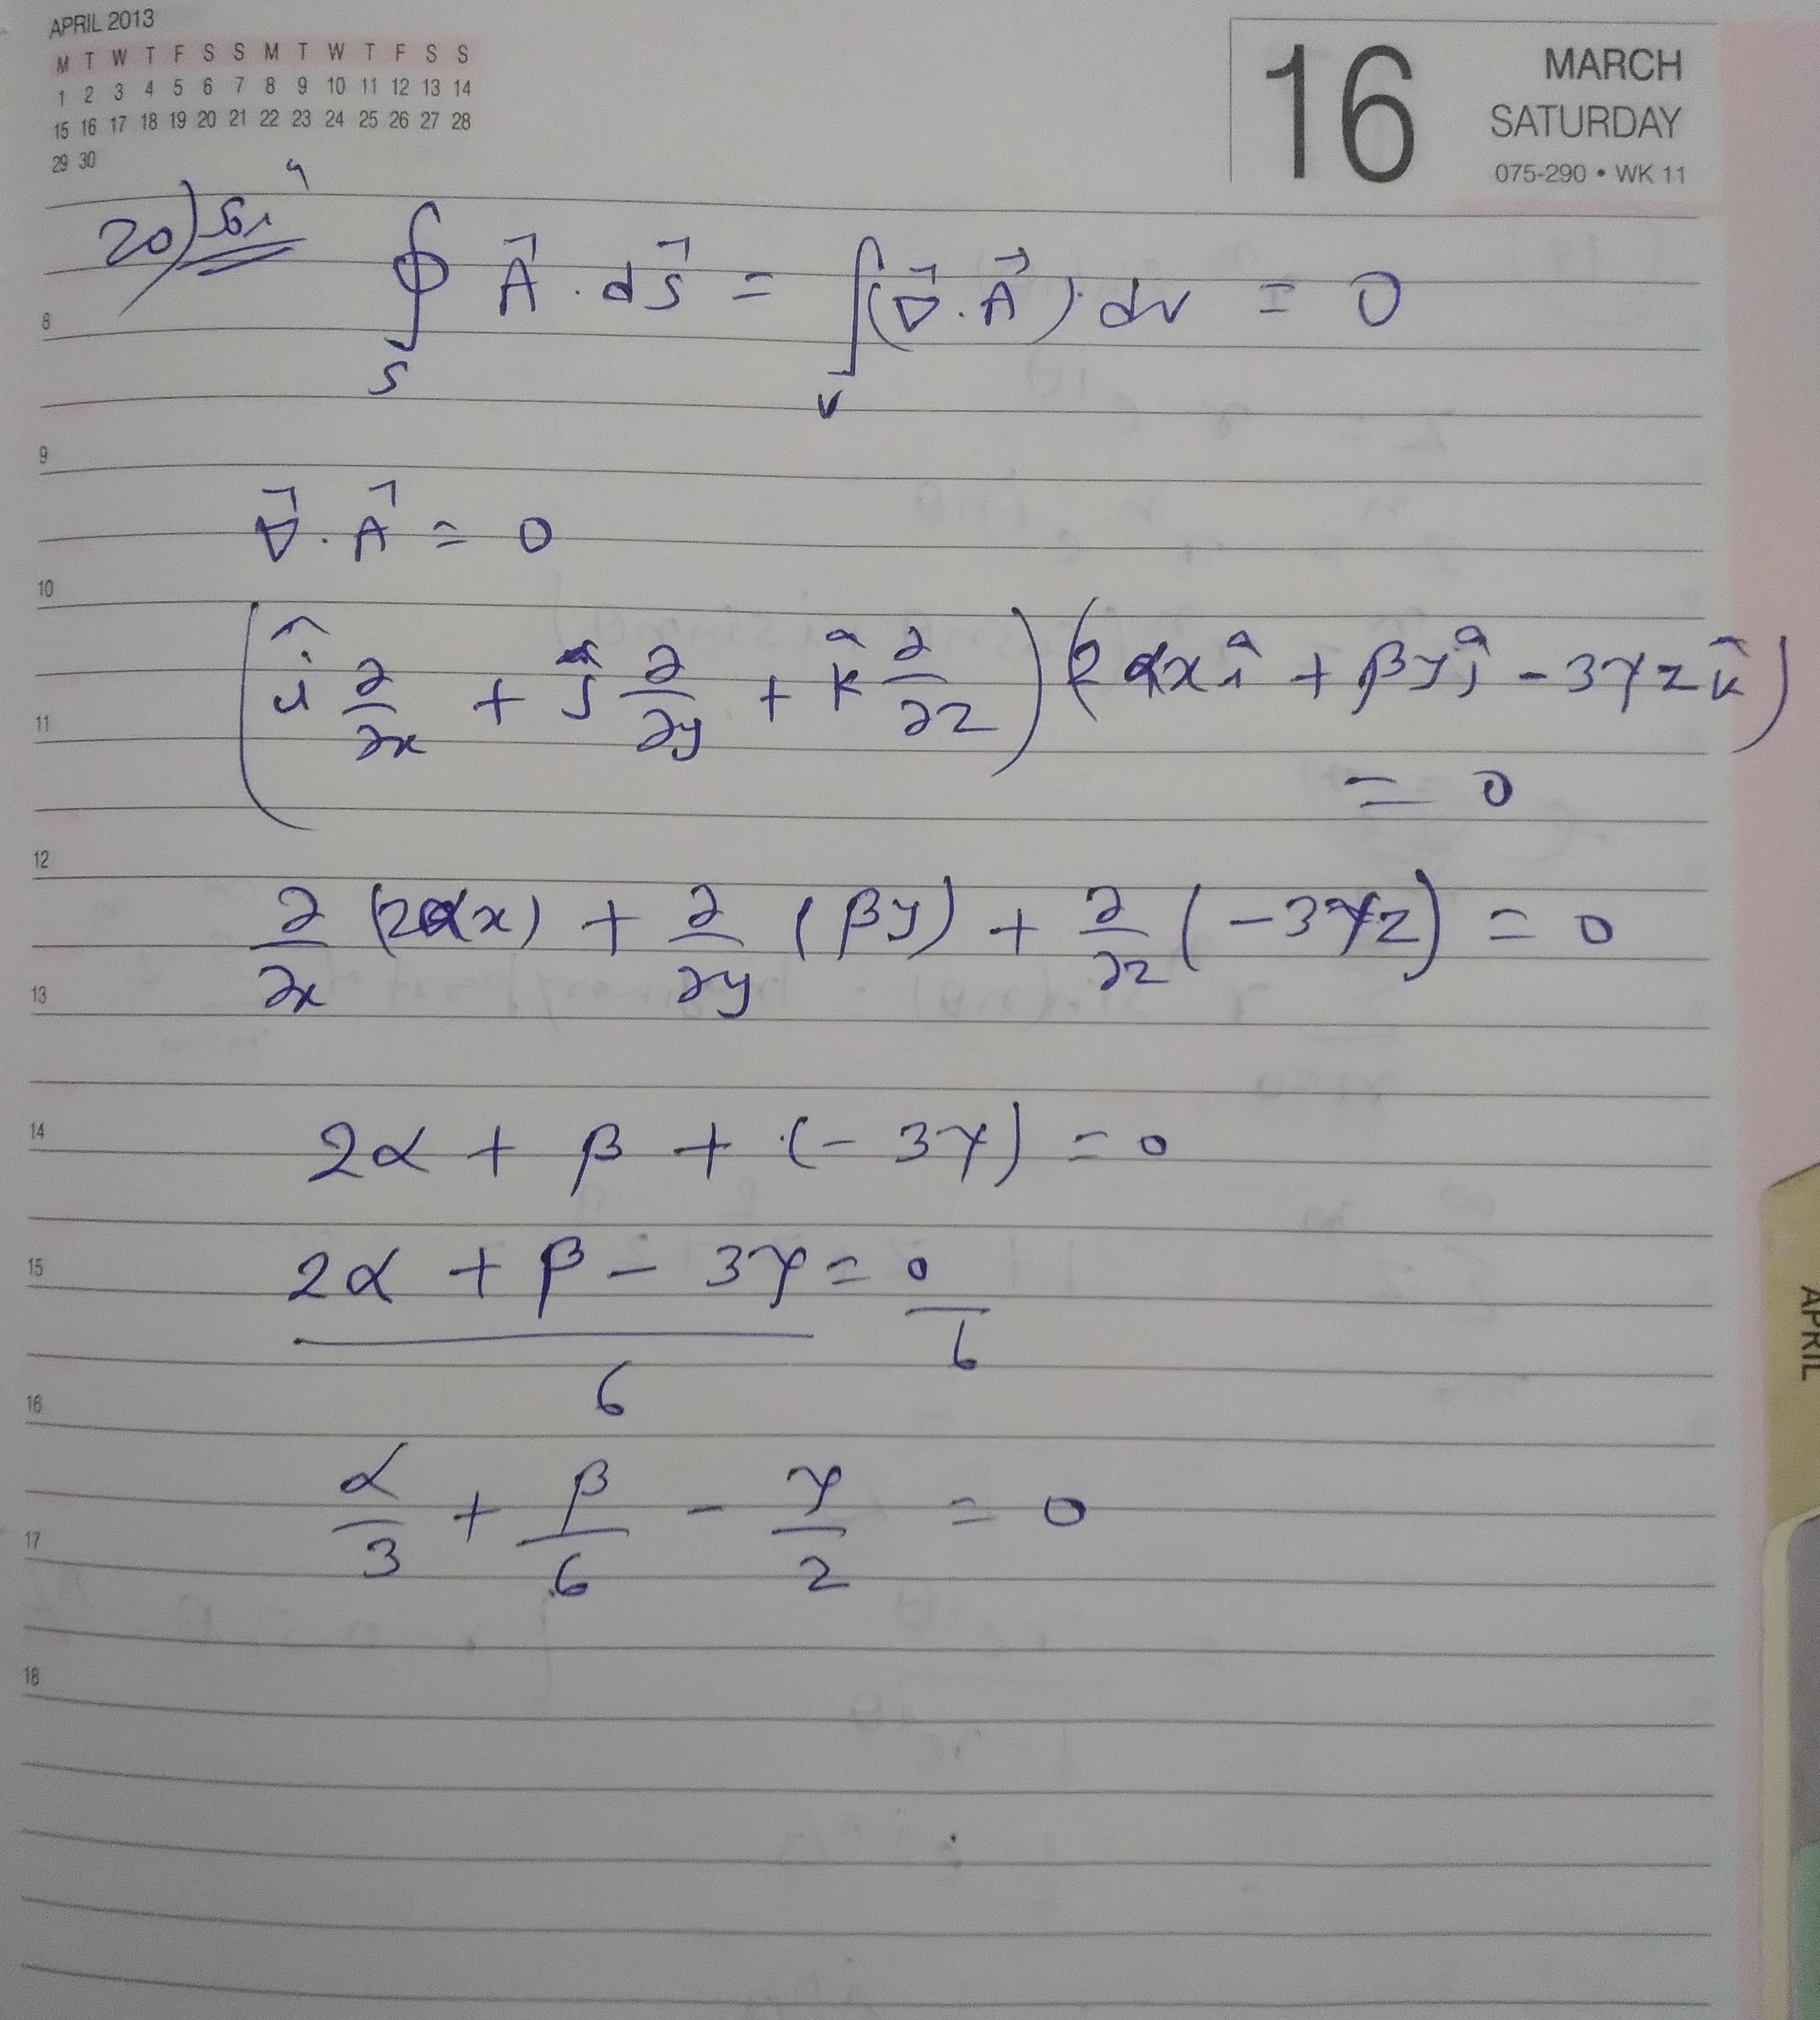 APRIL 2013
M T W T F S S M T W T F S S
1 2 3 4 5 6 7 8 9 10 11 12 13 14
15 16 17 18 19 20 21 22 23 24 25 26 27 28
29 30
16
MARCH
SATURDAY
075-290 • WK 11
20) Sol
∮_S A⃗ . dS⃗ = ∫_V (∇⃗ . A⃗) . dv = 0
8
9
∇⃗ . A⃗ = 0
10
(î ∂/∂x + ĵ ∂/∂y + k̂ ∂/∂z) (2αx î + βy ĵ - 3γz k̂)
11
= 0
12
∂/∂x (2αx) + ∂/∂y (βy) + ∂/∂z (-3γz) = 0
13
14
2α + β + (-3γ) = 0
15
(2α + β - 3γ)/6 = 0/6
16
α/3 + β/6 - γ/2 = 0
17
18
APRIL